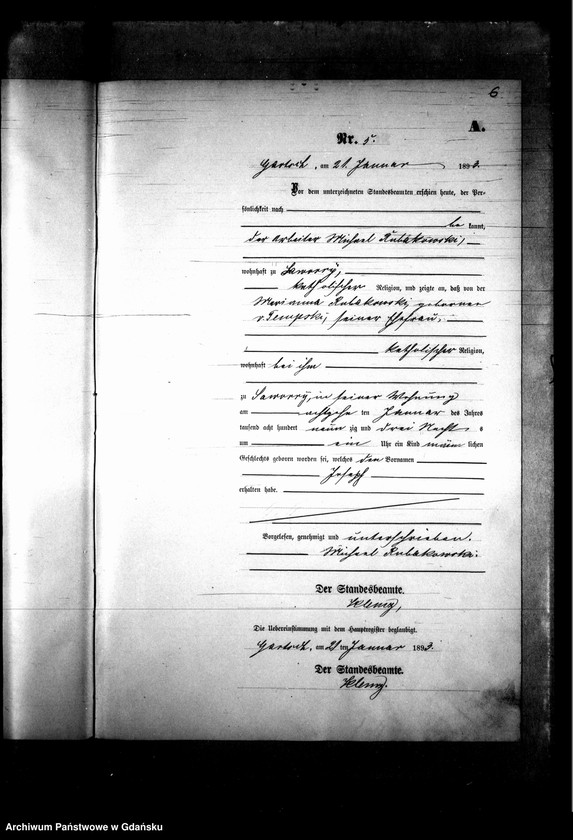 6
A.
Nr. 5.
am 21. Januar 1893.
Vor dem unterzeichneten Standesbeamten erschien heute, der Per-
sönlichkeit nach
be kannt,
der Arbeiter Michael Rubakowski,
wohnhaft zu Saworry,
katholischer Religion, und zeigte an, daß von der
Marianna Rubakowski geborener
v. Tempski, seiner Ehefrau,
katholischer Religion,
wohnhaft bei ihm
zu Saworry, in seiner Wohnung
am achtzehn ten Januar des Jahres
tausend acht hundert neun zig und drei Nacht s
um ein Uhr ein Kind männ lichen
Geschlechts geboren worden sei, welches den Vornamen
Joseph
erhalten habe.
Vorgelesen, genehmigt und unterschrieben.
Michael Rubakowski.
Der Standesbeamte.
Die Uebereinstimmung mit dem Hauptregister beglaubigt.
am 21 ten Januar 1893.
Der Standesbeamte.
Archiwum Państwowe w Gdańsku